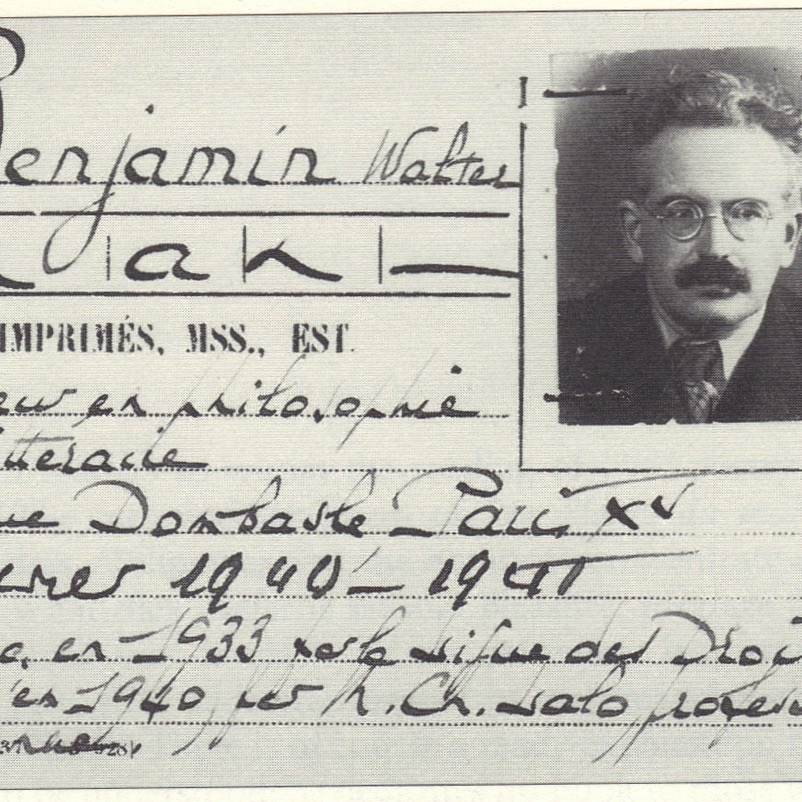 Benjamin Walter
a
IMPRIMÉS, MSS., EST.
en philosophie
littéraire
rue Dombasle Paris XV
1940 – 1941
en 1933 par la Ligue des Droi
en 1940 par M. Ch. Lalo profess